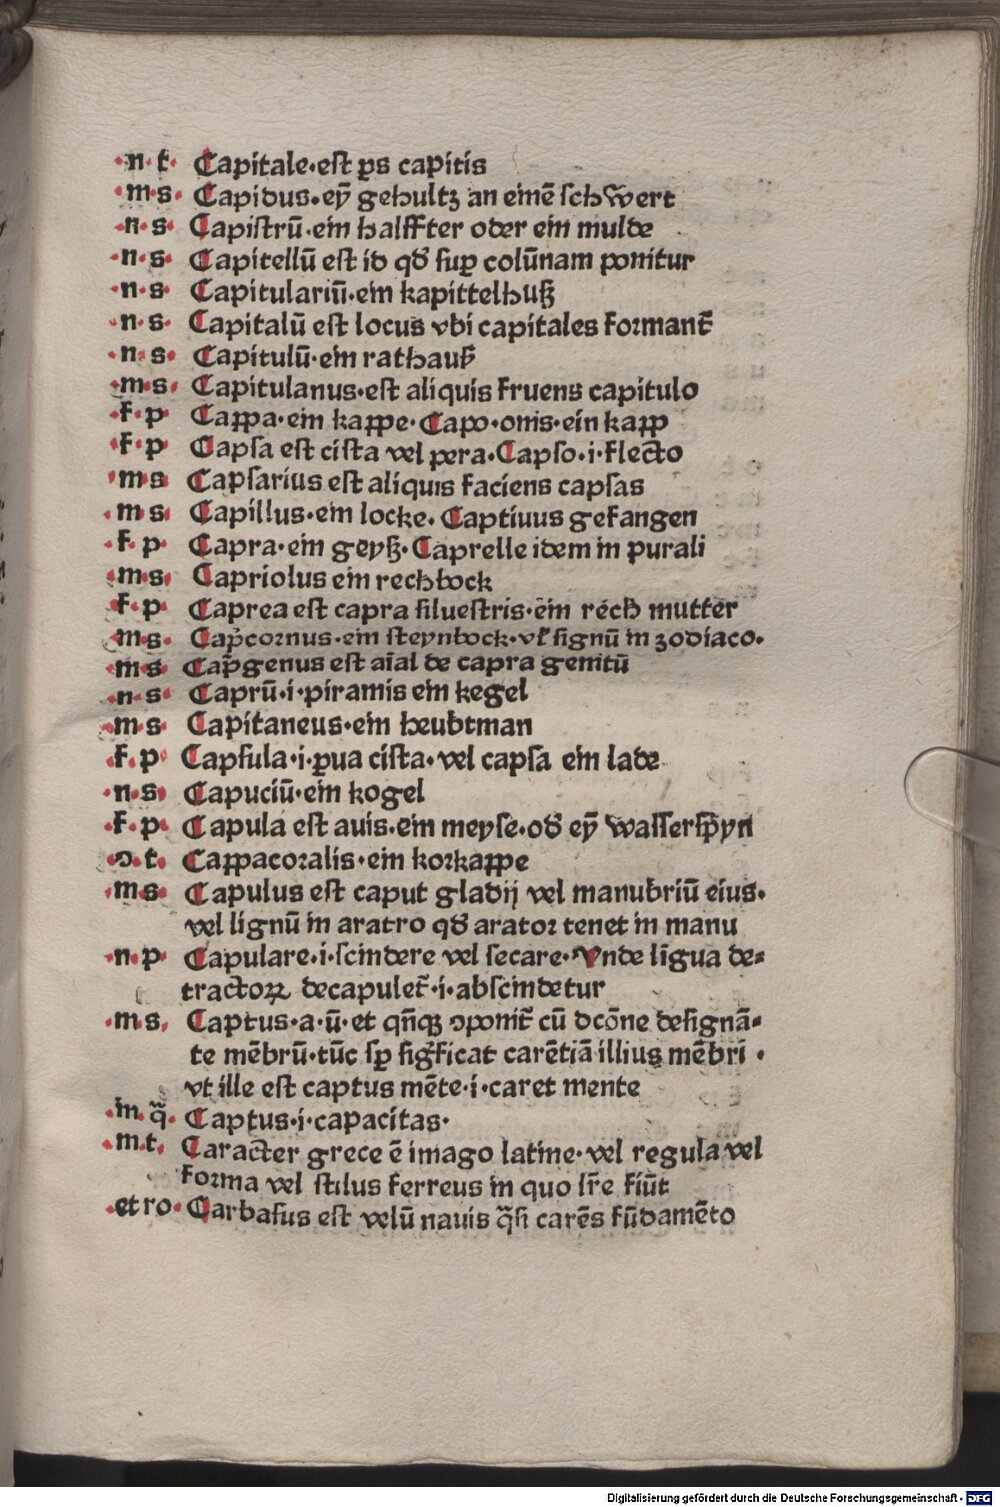 ·n·t· Capitale·est ꝑs capitis
·m·s· Capidus·eÿ gehultz an einē schwert
·n·s· Capistrū·ein halffter oder ein mulde
·n·s· Capitellū est id qd̛ suꝑ colūnam ponitur
·n·s· Capitulariū·ein kapittelhuß
·n·s· Capitalū est locus vbi capitales formant̃
·n·s· Capitulū·ein rathauß
·m·s· Capitulanus·est aliquis fruens capitulo
·f·p· Cappa·ein kappe·Capo·onis·ein kapp
·f·p· Capsa est cista vel pera·Capso·i·flecto
·m·s· Capsarius est aliquis faciens capsas
·m·s· Capillus·ein locke·Captiuus gefangen
·f·p· Capra·ein geyß·Caprelle idem in purali
·m·s· Capriolus ein rechbock
·f·p· Caprea est capra siluestris·ein rech mutter
·m·s· Cap̛cornus·ein steynbock·vl̛ signū in zodiaco·
·m·s· Cap̛genus est aīal de capra genitū
·n·s· Caprū·i·piramis ein kegel
·m·s· Capitaneus·ein heubtman
·f·p· Capsula·i·ꝑua cista·vel capsa ein lade
·n·s· Capuciū·ein kogel
·f·p· Capula est auis·ein meyse·od̛ eÿ wasserspyn
·ↄ·t· Cappacoralis·ein korkappe
·m·s· Capulus est caput gladij vel manubriū eius·
vel lignū in aratro qd̛ arator tenet in manu
·n·p· Capulare·i·scindere vel secare·Vnde ligua de-
tractoꝝ decapulet̃·i·abscindetur
·m·s· Captus·a·ū·et qñqꝫ ↄponit̃ cū dcōne designā-
te mēbrū·tūc sꝑ sigficat carētiā illius mēbri·
vt ille est captus mēte·i·caret mente
·m·q̃· Captus·i·capacitas·
·m·t· Caracter grece ē imago latine·vel regula vel
forma vel stilus ferreus in quo lr̄e fiūt
·et ro· Carbasus est velū nauis q̃si carēs fūdamēto
Digitalisierung gefördert durch die Deutsche Forschungsgemeinschaft - DFG